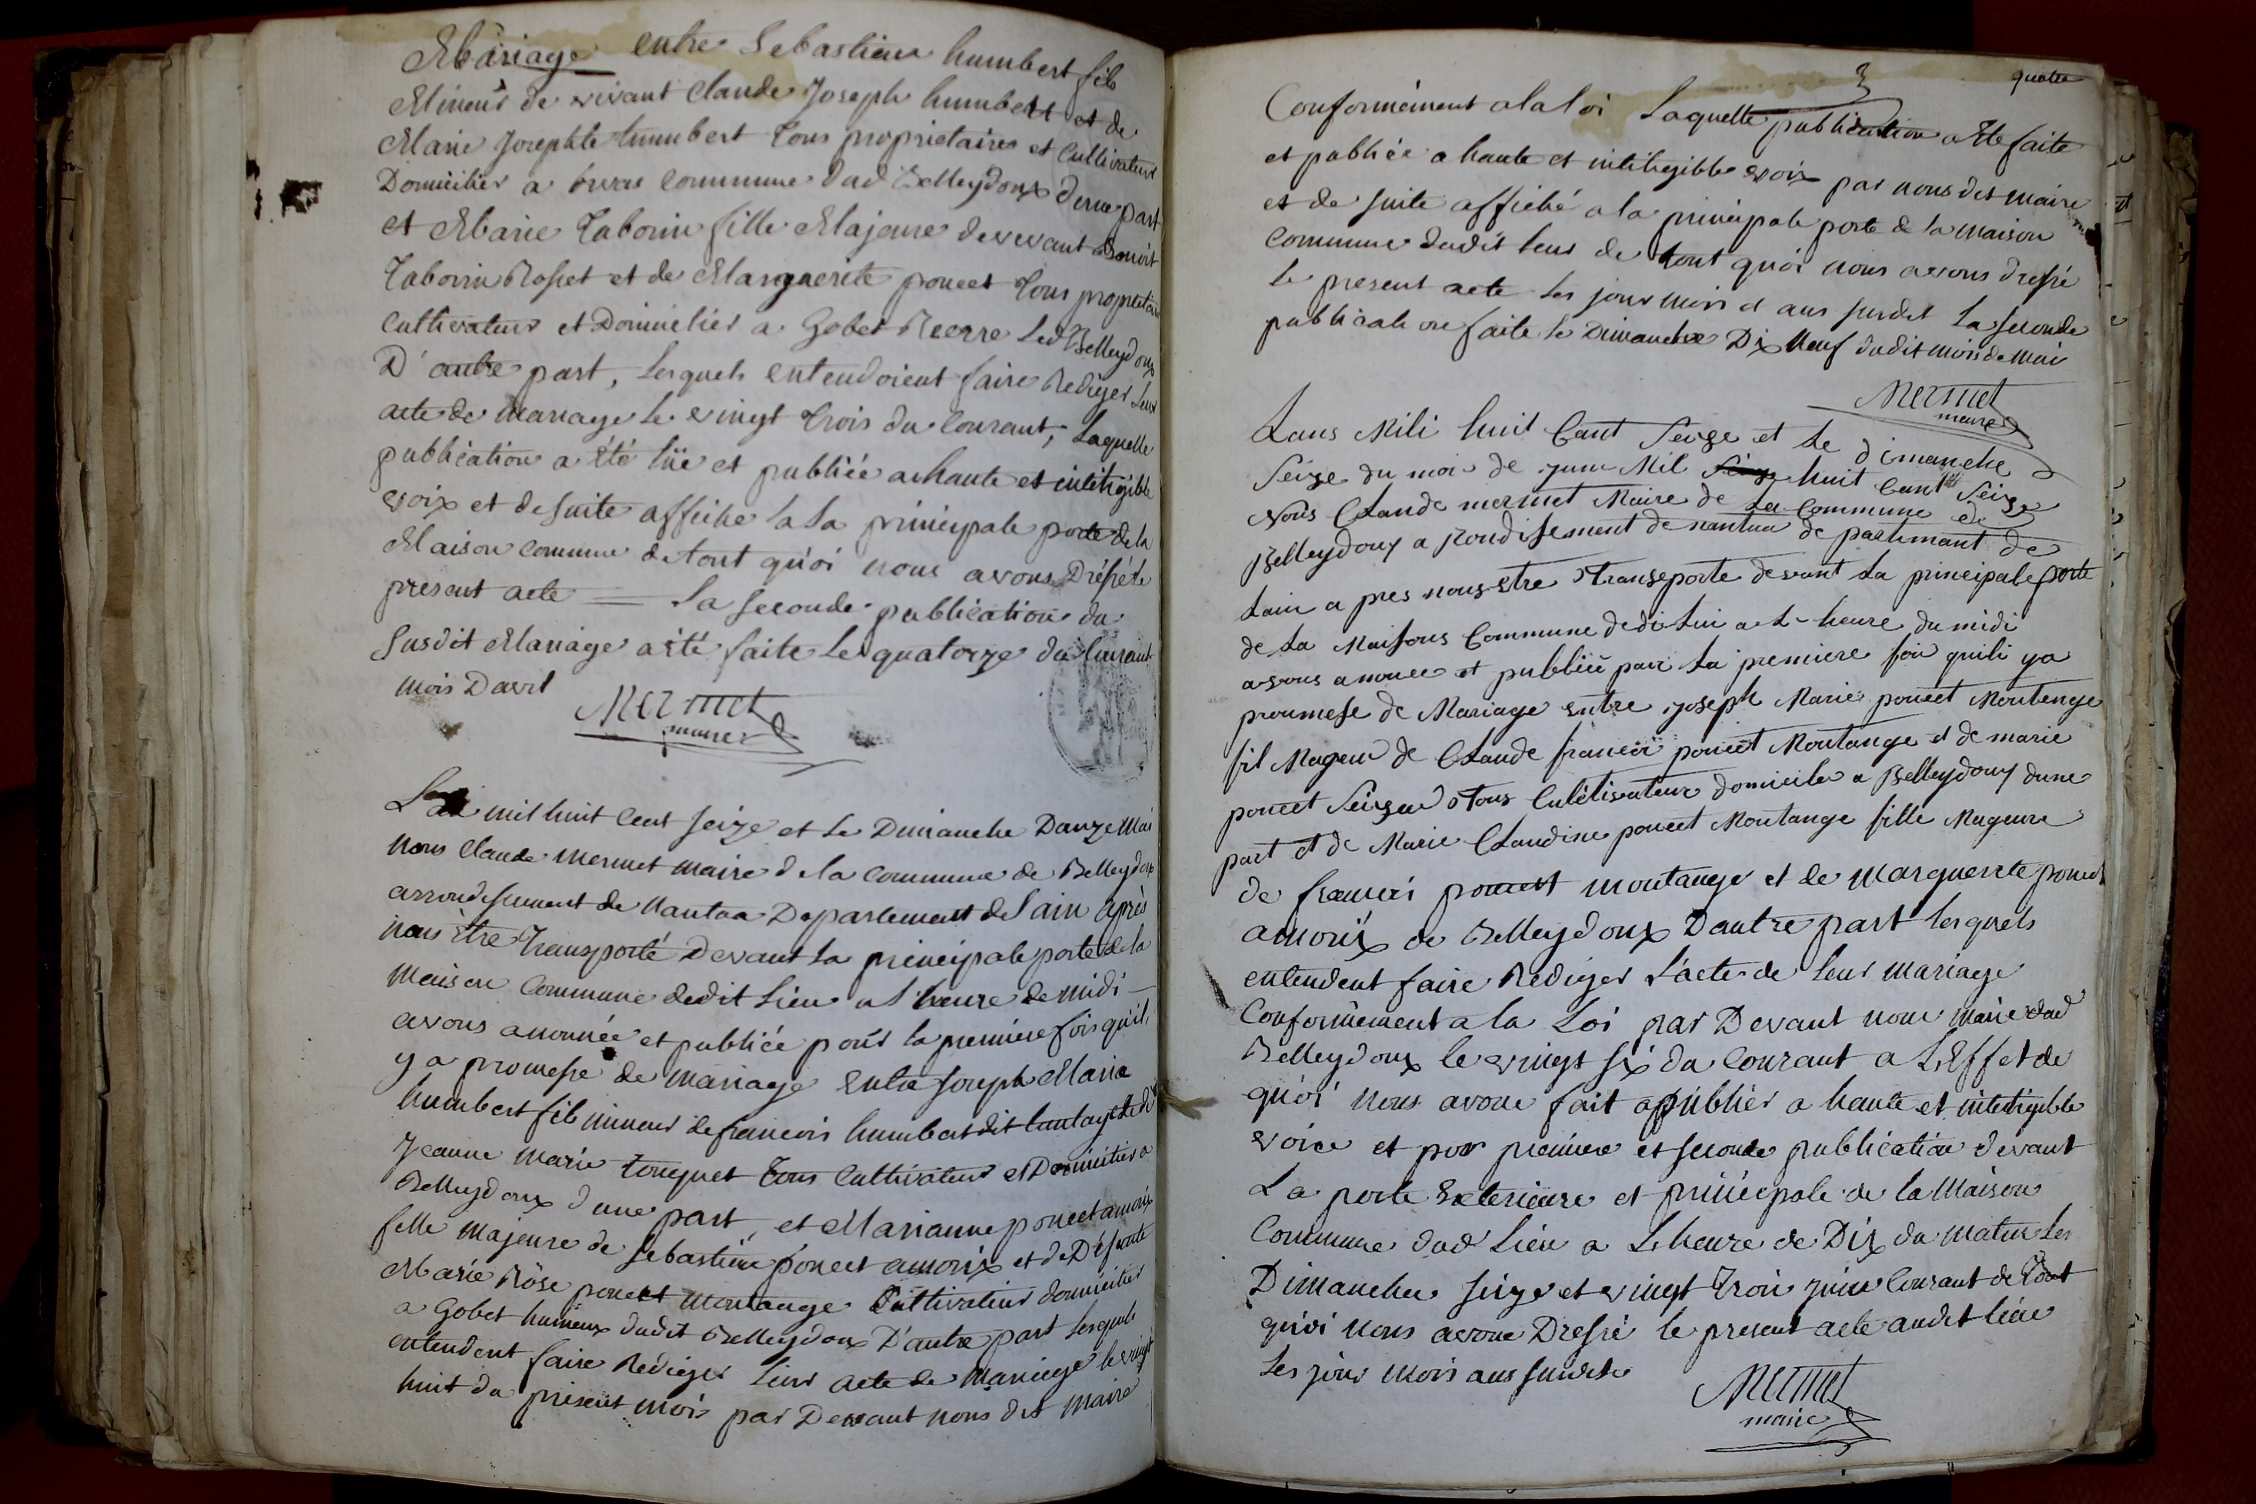 Mariage entre Sebastien humbert fils
Mineur de vivant Claude Joseph humbert et de
Marie Josephte humbert tous proprietaires et Cultivateur
Domicilier a commune dud Belleydoux dune part
et Marie Tabouin fille Majeure de vivant
Tabouin Rosset et de Marguerite poncet tous proprietaire
Cultivateur et Domicilier a Gobet led Belleydoux
D'autre part, lesquels entendoient faire Rediger Leur
acte de Mariage le vingt trois du Courant, Laquelle
publication a été lüe et publiée a haute et intiligible
voix et de suite affichee a La principale porte de la
Maison commune de tout quoi nous avons Dréssé le
present acte = La seconde publication du
susdit Mariage a été faite Le quatorze du Courant
mois Davril
Mermet
maire
Lan mil huit Cent seize et le Dimanche Douze Mai
Nous Claude Mermet maire de la Commune de Belleydoux
arrondissement de Nantua Departement de Lain après
nous être Transporté Devant La principale porte de la
Maison Commune dedit Lieu a L'heure de midi -
avons anonnée et publiée pour la première fois quil
y a promesse de mariage Entre Joseph Marie
humbert fils mineur de francois humbert dit
Jeanne Marie touquet tous Cultivateur et Domicilier a
Belleydoux d'une part, et Marianne poncet amorix
fille majeure de Sebastien poncet amorix et de Défunte
Marie Rose poncet Montange Cultivateur domicilier
a Gobet dudit Belleydoux D'autre part Lesquels
entendent faire Rediger Leur acte de Mariage le vingt
huit du présent mois par Devant nous dit Maire
quatre
3
Conformément a la loi Laquelle publication a été faite
et publiée a haute et intiligible voix par nous dit maire
et de suite affiché a la principale porte de la maison
Commune dudit lieu de tout quoi nous avons dressé
le present acte les jour mois et ans susdit La seconde
publication faite le Dimanche Dix Neuf dudit mois de Mai
Mermet
maire
Lans Mili huit Cant Seize et Le dimanche
Seize du moi de juin Mil huit Cant Seize
Nous Claude mermet Maire de La Commune de
Belleydoux a Rondisement de nantua de partemant de
Lain a pres nous etre transporte devant La principale porte
de La Maisons Commune dedi Lui a L heure du midi
avons anonce et publiée par La premiere foi quili ya
proumese de Mariage entre joseph Marie poncet Montenge
fil Mageur de Claude francoi poncet Montange et de marie
poncet tous Culitivateur domicile a Belleydoux dune
part et de Marie Claudine poncet Montange fille Mageure
de francois poncet montange et de Marguerite poncet
amorix de Belleydoux Dautre part Lesquels
entendent faire Rediger L'acte de Leur mariage
Conformément a la Loi par Devant nous maire dud
Belleydoux le vingt six du Courant a L'Effet de
quoi nous avons fait apublier a haute et intiligible
voice et por premiere et seconde publication devant
La porte Exterieure et principale de la Maison
Commune dud Lieu a L heure de Dix du matin Les
Dimanches seize et vingt trois juin Courant de tout
quoi nous avons Dressé le present acte audit lieu
Les jour mois ans susdits
Mermet
maire